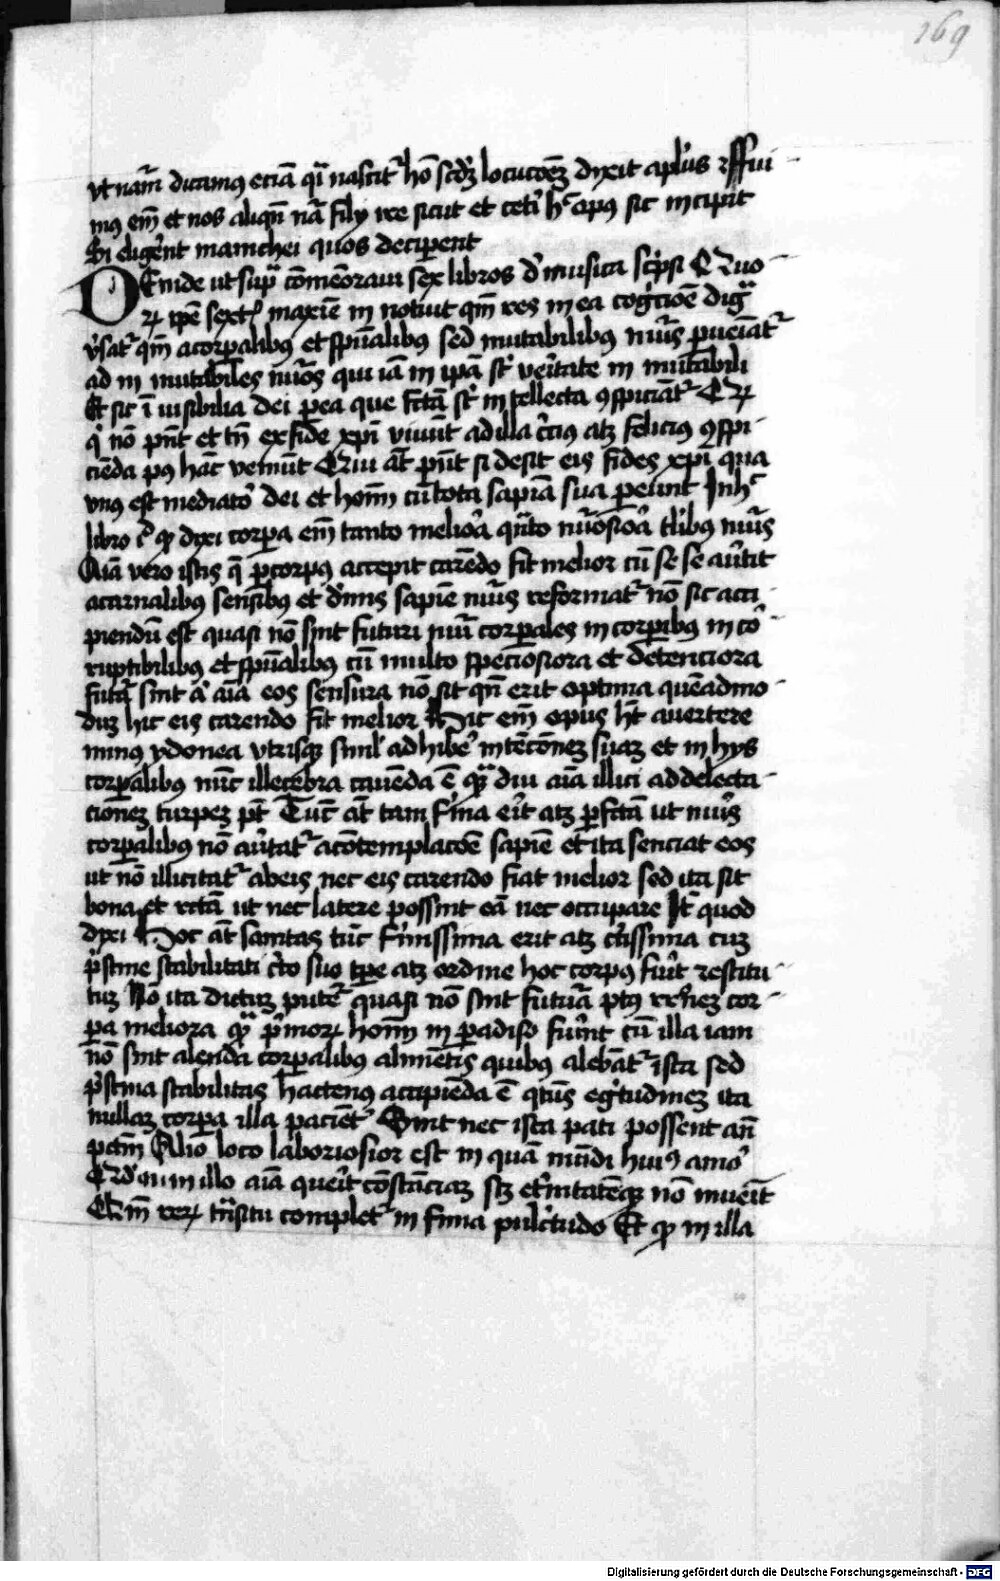 169
vt nam̄ dicimus eciā qͥ nascit᷑ hō scd̄ꝫ locucōeꝫ dyxit aplūs ꝛ ffui-
mus em̄ et nos aliqn̄ nā filij ire sicut et cet̄i hͨ opus sic incipit
Si eligēnt manichei quos deciperent
Deinde ut supͣ cōmēoraui sex libros d' musica scͥpsi Quo-
rꝝ ip̄e sext᷒ maxīe in notuit qm̄ res in ea cogͥcōe digͣ
v̓sat᷑ qm̄ a corꝑalibus et spūalibus sed mutabilibus nūis ꝑueiat᷑
ad in mutabiles nūos qui iā in ip̄a st̄ veritate in mutabili
Et sic ī uisibilia dei ꝑ ea que fctā st̄ intellecta ꝯspiciāt᷑ Qꝫ
qͥ nō pn̄t et tn̄ ex fide xp̄i viuūt ad illa c̓cius atꝫ felicius ꝯspi-
ciēda pꝰ hāc veniūt Qui āt pn̄t si desit eis fides xp̄i qua
vnus est mediato᷑ dei et hom̄ cū tota sapiā sua ꝑeunt In hͨ
libro qd̓ dixi corꝑa em̄ tanto meliora qͣto nūosiora tl̓ibus nūis
Aīa vero istis q̄ ꝑ corpus accepit carēdo fit melior cū se se au̓tit
a carnalibus sensibus et diuīs sapiē nūis reformat᷑ nō sic acci-
piendū est quasi nō sint futuri nūi corꝑales in corꝑibus in co᷑-
ruptibilibus et spūalibus cū multo speciosiora et decenciora
futͣ sint aͥ aīa eos sensura nō sit qn̄ erit optima quēadmo-
dū hic eis carendo fit melior Hic em̄ opus hꝫ auertere
minus ydonea vtrisqꝫ siml̓ adhibe᷑ intēcōneꝫ suaꝫ et in hijs
corꝑalibus nūc illecebra cauēda ē qͣ diu aīa illici ad delecta-
cioneꝫ turpeꝫ pt̄ Tūc āt tam firma erit atꝫ ꝑfctā ut nūis
corꝑalibus nō au̓tat᷑ a cōtemplacōe sapiē et ita senciat eos
ut nō illicitat᷑ ab eis nec eis carendo fiat melior sed ita sit
bona et rctā ut nec latere possint eā nec occupare It̄ quod
dyxi Hoc āt sanitas tūc firmissima erit atꝫ c̓tissima cuꝫ
pͥstine stabilitati c̓to suo tꝑe atꝫ ordine hoc corpus fu̓it restitu-
tuꝫ Nō ita dictuꝫ pute᷑ quasi nō sint futura pꝰ rr̄neꝫ cor-
ꝑa meliora qͣ pͥmorꝝ hom̄ in ꝑadiso fu̓unt cū illa iam
nō sint alenda corꝑalibus alimētis quibus alebāt᷑ ista sed
pͥstina stabilitas hactenus accipiēda ē qͭen̄s egͥtudineꝫ ita
nullaꝫ corꝑa illa pacient᷑ Sicut nec ista pati possent an̄
pctm̄ Alio loco laboriosior est in quā mūdi huiꝰ amo᷑
Qd̓ em̄ in illo aīa querit cōstāciaꝫ stꝫ et̓nitatēqꝫ nō inueīt
Qm̄ rerꝝ trͣnsitu complet᷑ infima pulcͥtudo Et qͩ in illa